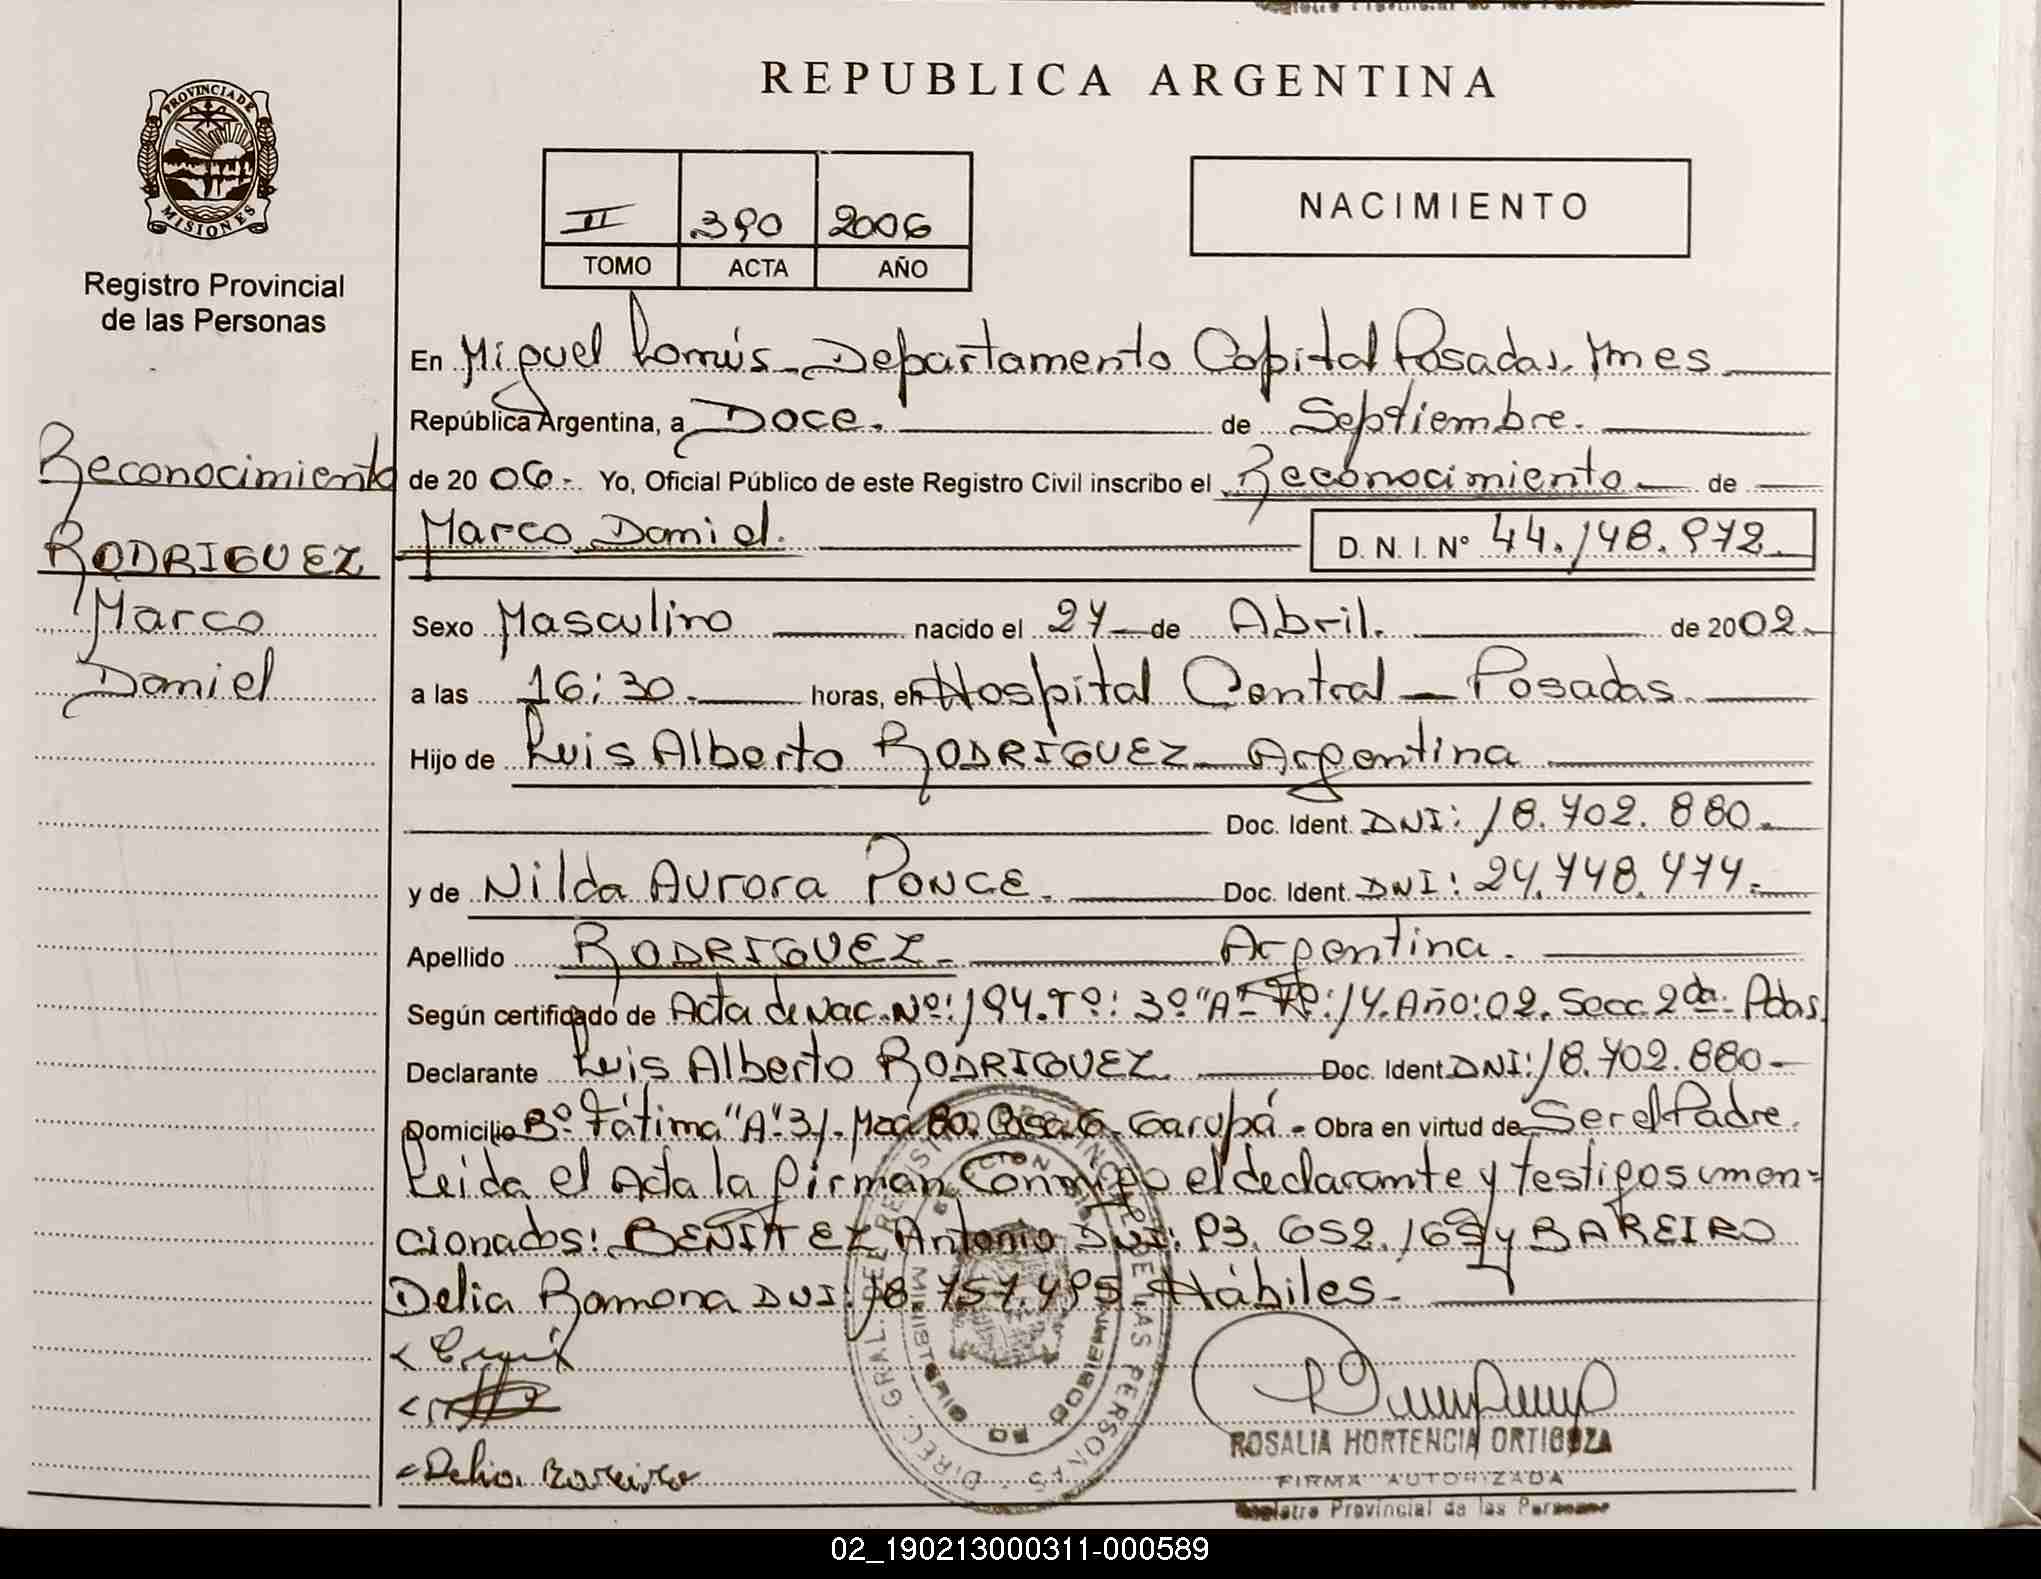 REPUBLICA ARGENTINA
PROVINCIA DE MISIONES
Registro Provincial
de las Personas
II 390 2006
TOMO ACTA AÑO
NACIMIENTO
En Miguel Lanús - Departamento Capital Posadas, Mnes
República Argentina, a Doce. de Septiembre.
de 20 06.- Yo, Oficial Público de este Registro Civil inscribo el Reconocimiento de
Marco Daniel. D. N. I. Nº 44.148.972
Reconocimiento
RODRIGUEZ
Marco
Daniel
Sexo Masculino nacido el 27 de Abril. de 2002.
a las 16:30. horas, en Hospital Central - Posadas.
Hijo de Luis Alberto RODRIGUEZ - Argentina
Doc. Ident. DNI: 18.702.880.
y de Nilda Aurora PONCE. Doc. Ident. DNI: 24.748.474.
Apellido RODRIGUEZ. Argentina.
Según certificado de Acta de Nac. Nº: 194. Tº: 3º "A" Fº: 14. Año: 02. Secc. 2da. Pdas.
Declarante Luis Alberto RODRIGUEZ Doc. Ident. DNI: 18.702.880-
Domicilio Bº Fátima "A" 31. Mza 80. Casa 6. Garupá. Obra en virtud de Ser el Padre.
Leida el Acta la firman Conmigo el declarante y testigos men=
cionados: BENITEZ Antonio DNI: 93.652.169 y BAREIRO
Delia Ramona DNI: 18.757.495 Hábiles-
Delia Bareiro
DIREC. GRAL. DEL REGISTRO PROVINCIAL DE LAS PERSONAS
MINISTERIO DE GOBIERNO
ROSALIA HORTENCIA ORTIGOZA
FIRMA AUTORIZADA
Registro Provincial de las Personas
02_190213000311-000589